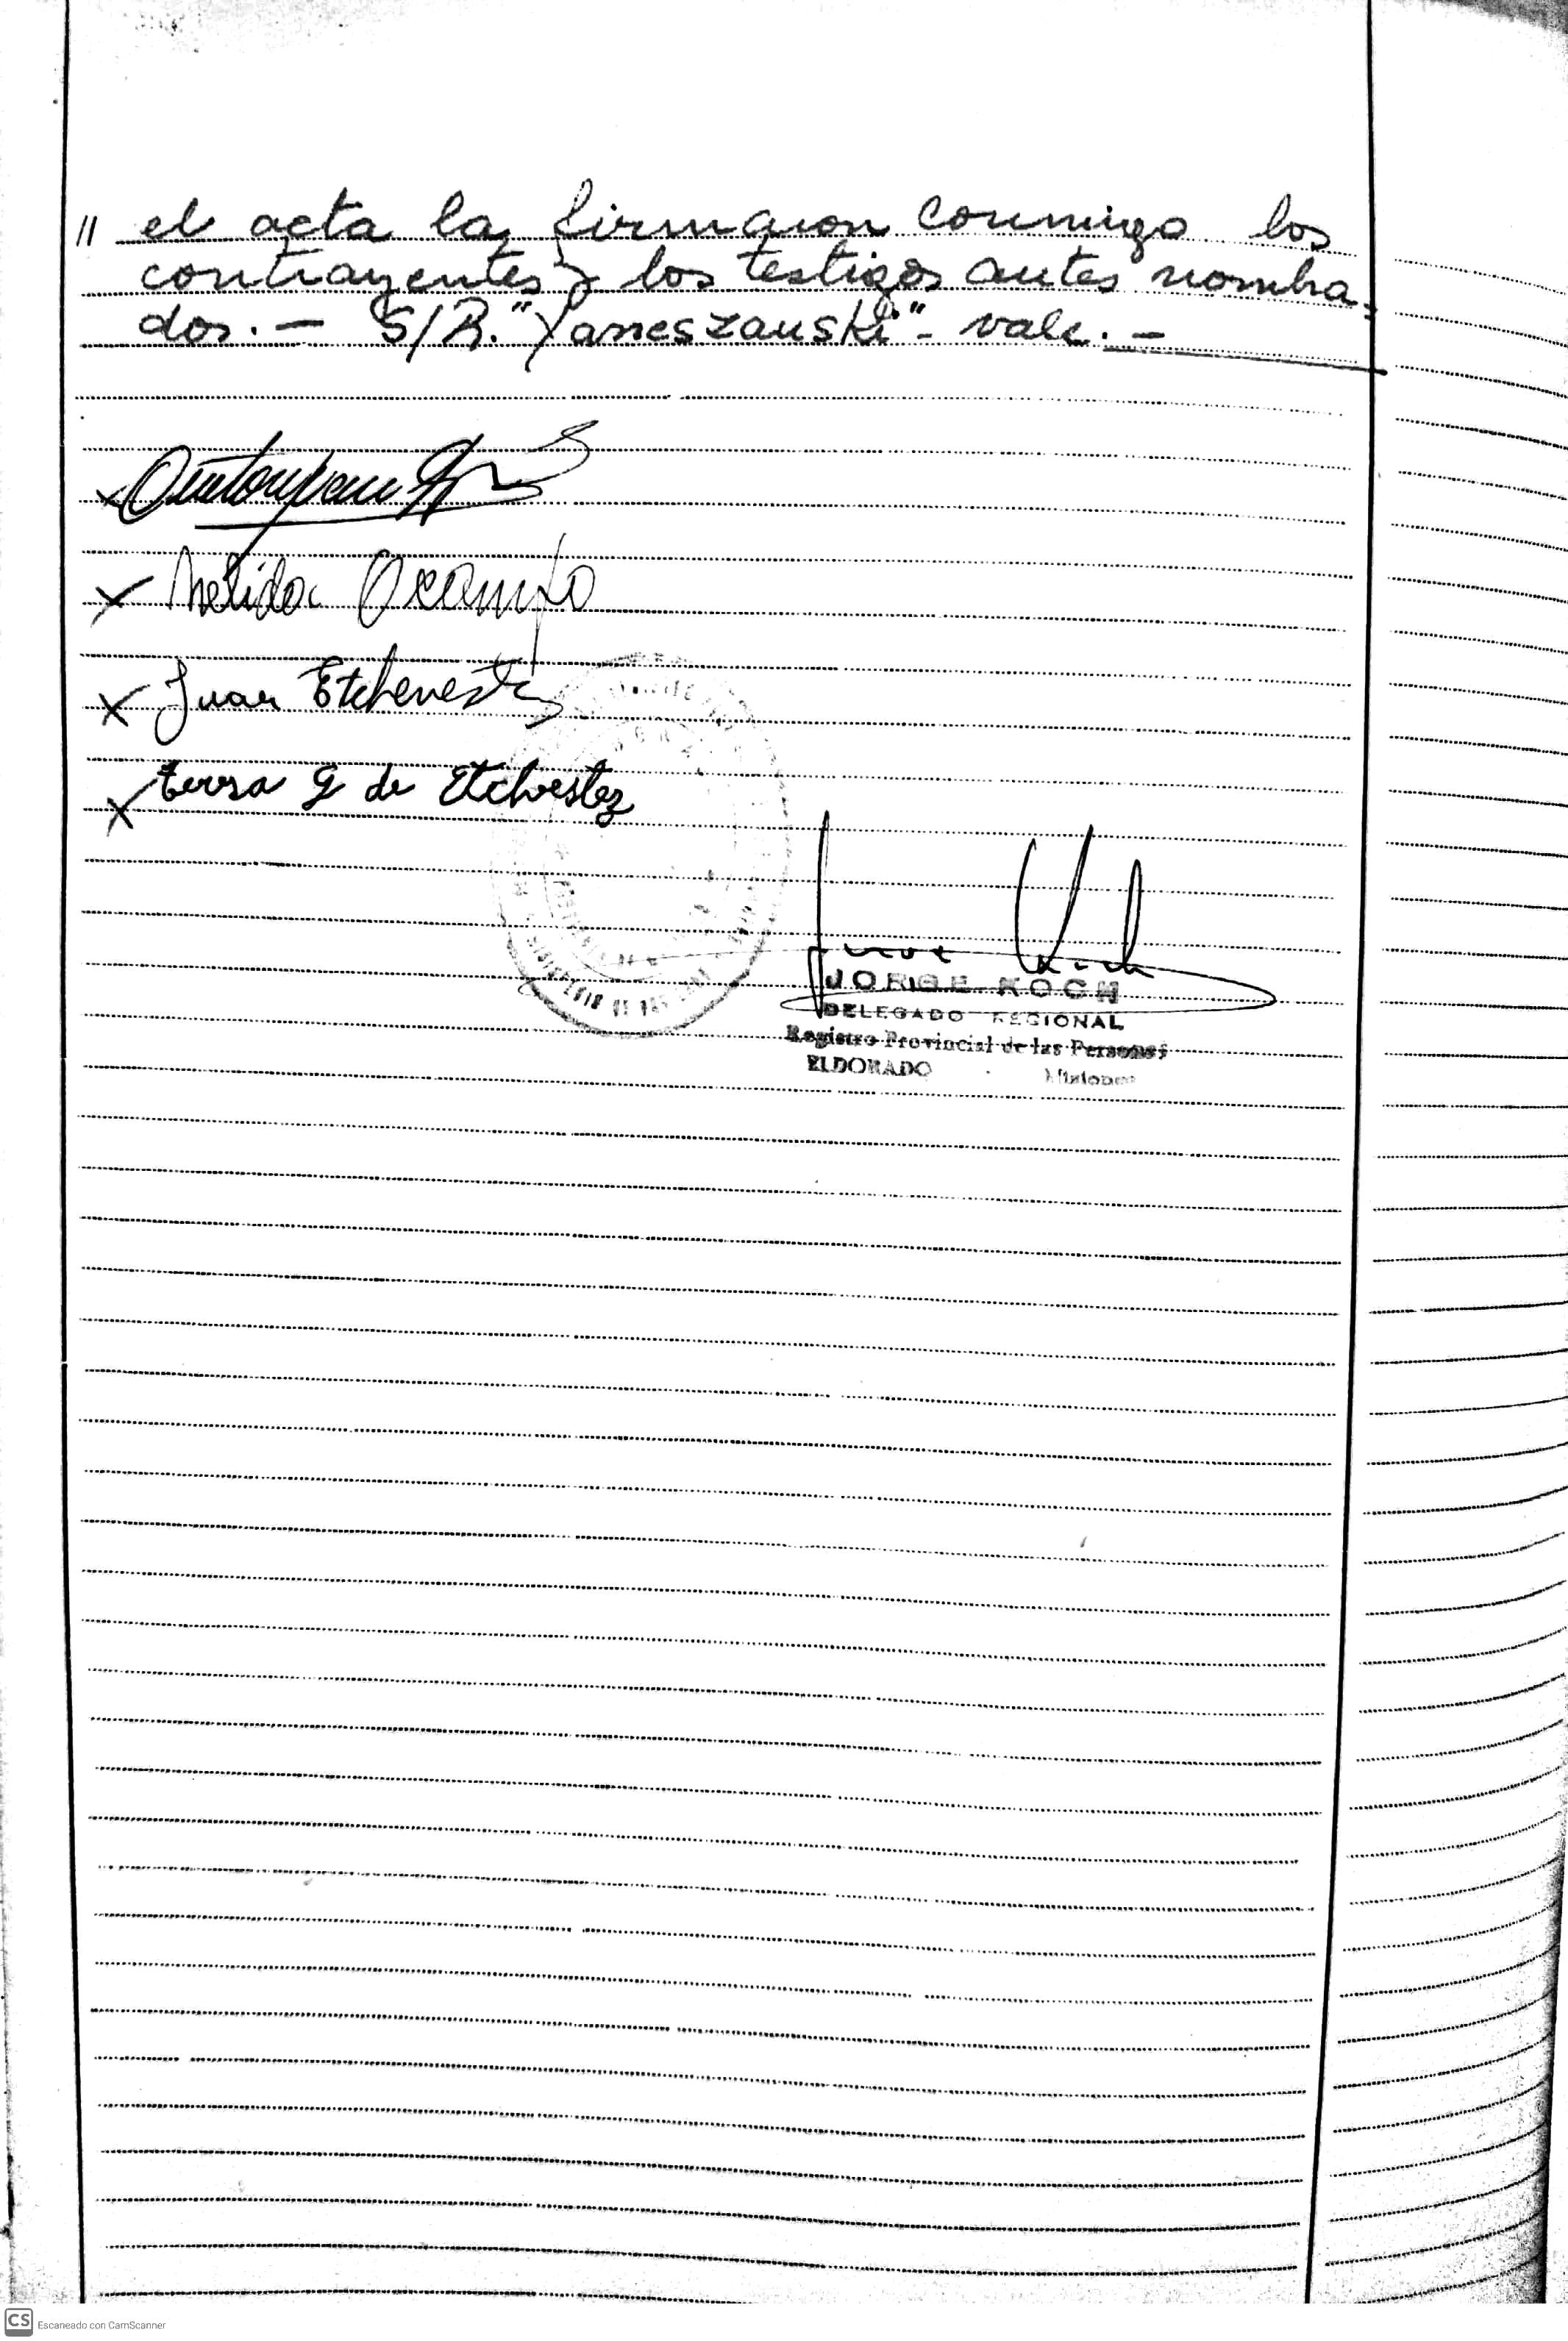 // el acta la firmaron conmigo los
contrayentes y los testigos antes nombra-
dos. - S/R. "Yaneszauski" - vale. -
x
x Nélida Ocampo
x Juar Etchevest
x teresa G de Etchvestez
Jorge Koch
JORGE KOCH
DELEGADO REGIONAL
Registro Provincial de las Personas
ELDORADO Misiones
CS Escaneado con CamScanner